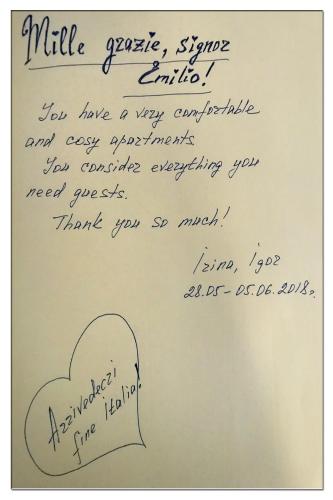 Mille grazie, signor
Emilio!
You have a very comfortable
and cosy apartments.
You consider everything you
need guests.
Thank you so much!
Irina, Igor
28.05-05.06.2018г.
Arrivederci
fine italia!